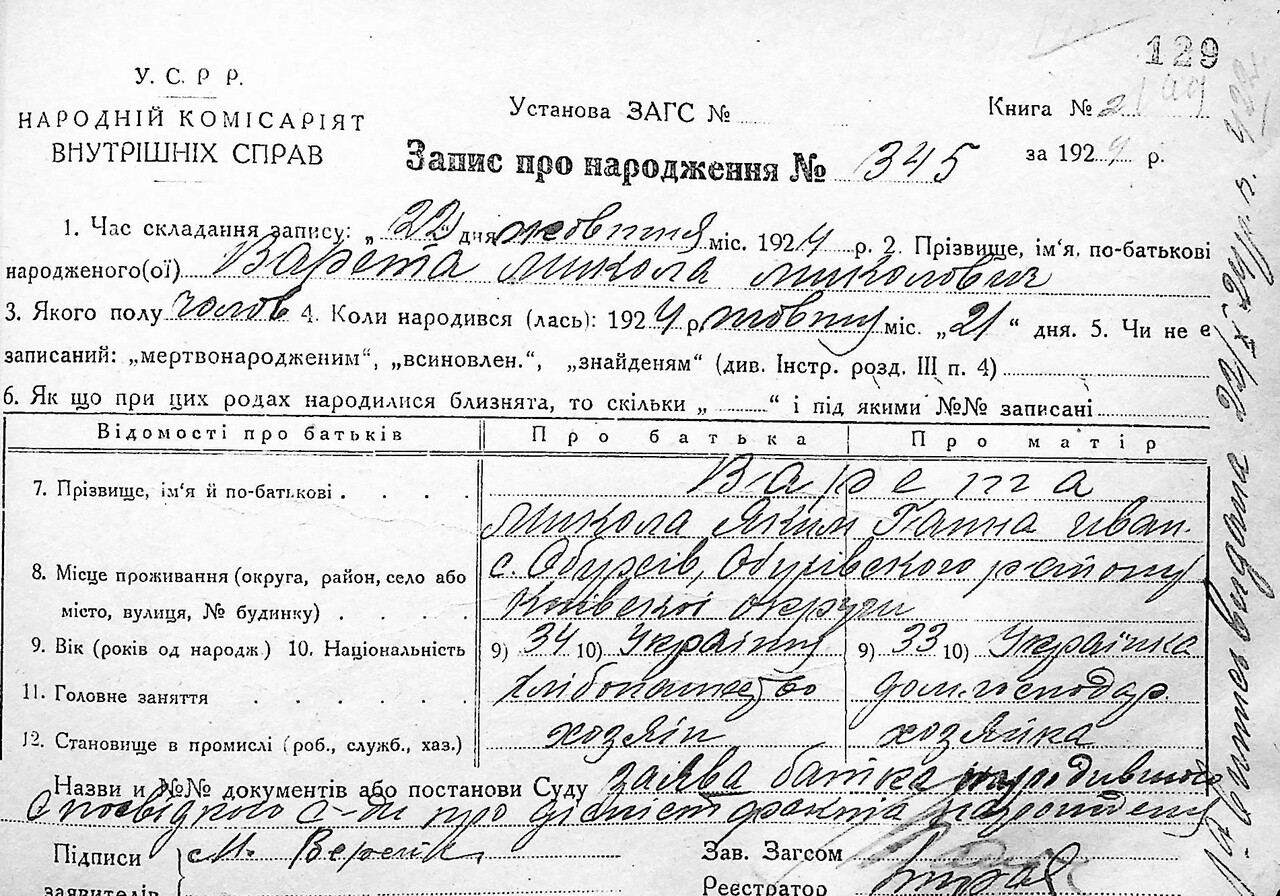 129
У. С. Р Р.
НАРОДНІЙ КОМІСАРІЯТ
ВНУТРІШНІХ СПРАВ
Установа ЗАГС №
Книга № 2
Запис про народження № 345
за 1924 р.
1. Час складання запису: „22“ дня жовтня міс. 1924 р. 2. Прізвище, ім'я, по-батькові
народженого(ої) Варета Микола Миколович
3. Якого полу чолов 4. Коли народився (лась): 1924 р. жовтня міс. „21“ дня. 5. Чи не є
записаний: „мертвонародженим“, „всиновлен.“, „знайденям“ (див. Інстр. розд. III п. 4)
6. Як що при цих родах народилися близнята, то скільки „ “ і під якими №№ записані
Відомості про батьків Про батька Про матір
7. Прізвище, ім'я й по-батькові . . . . Варета
Микола Яким Ганна Иван.
8. Місце проживання (округа, район, село або с. Обухів, Обухівского району
місто, вулиця, № будинку) . . . . Київскої округи
9. Вік (років од народж.) 10. Національність 9) 34 10) Українец 9) 33 10) Українка
11. Головне заняття . . . . . . хлібопашество дом. господар.
12. Становище в промислі (роб., служб., хаз.) хозяін хозяйка
Назви и №№ документів або постанови Суду заява батька
с-ди про дійсність факта
Підписи М.
заявителів
Зав. Загсом
Реєстратор
видана 22/X 24 р.